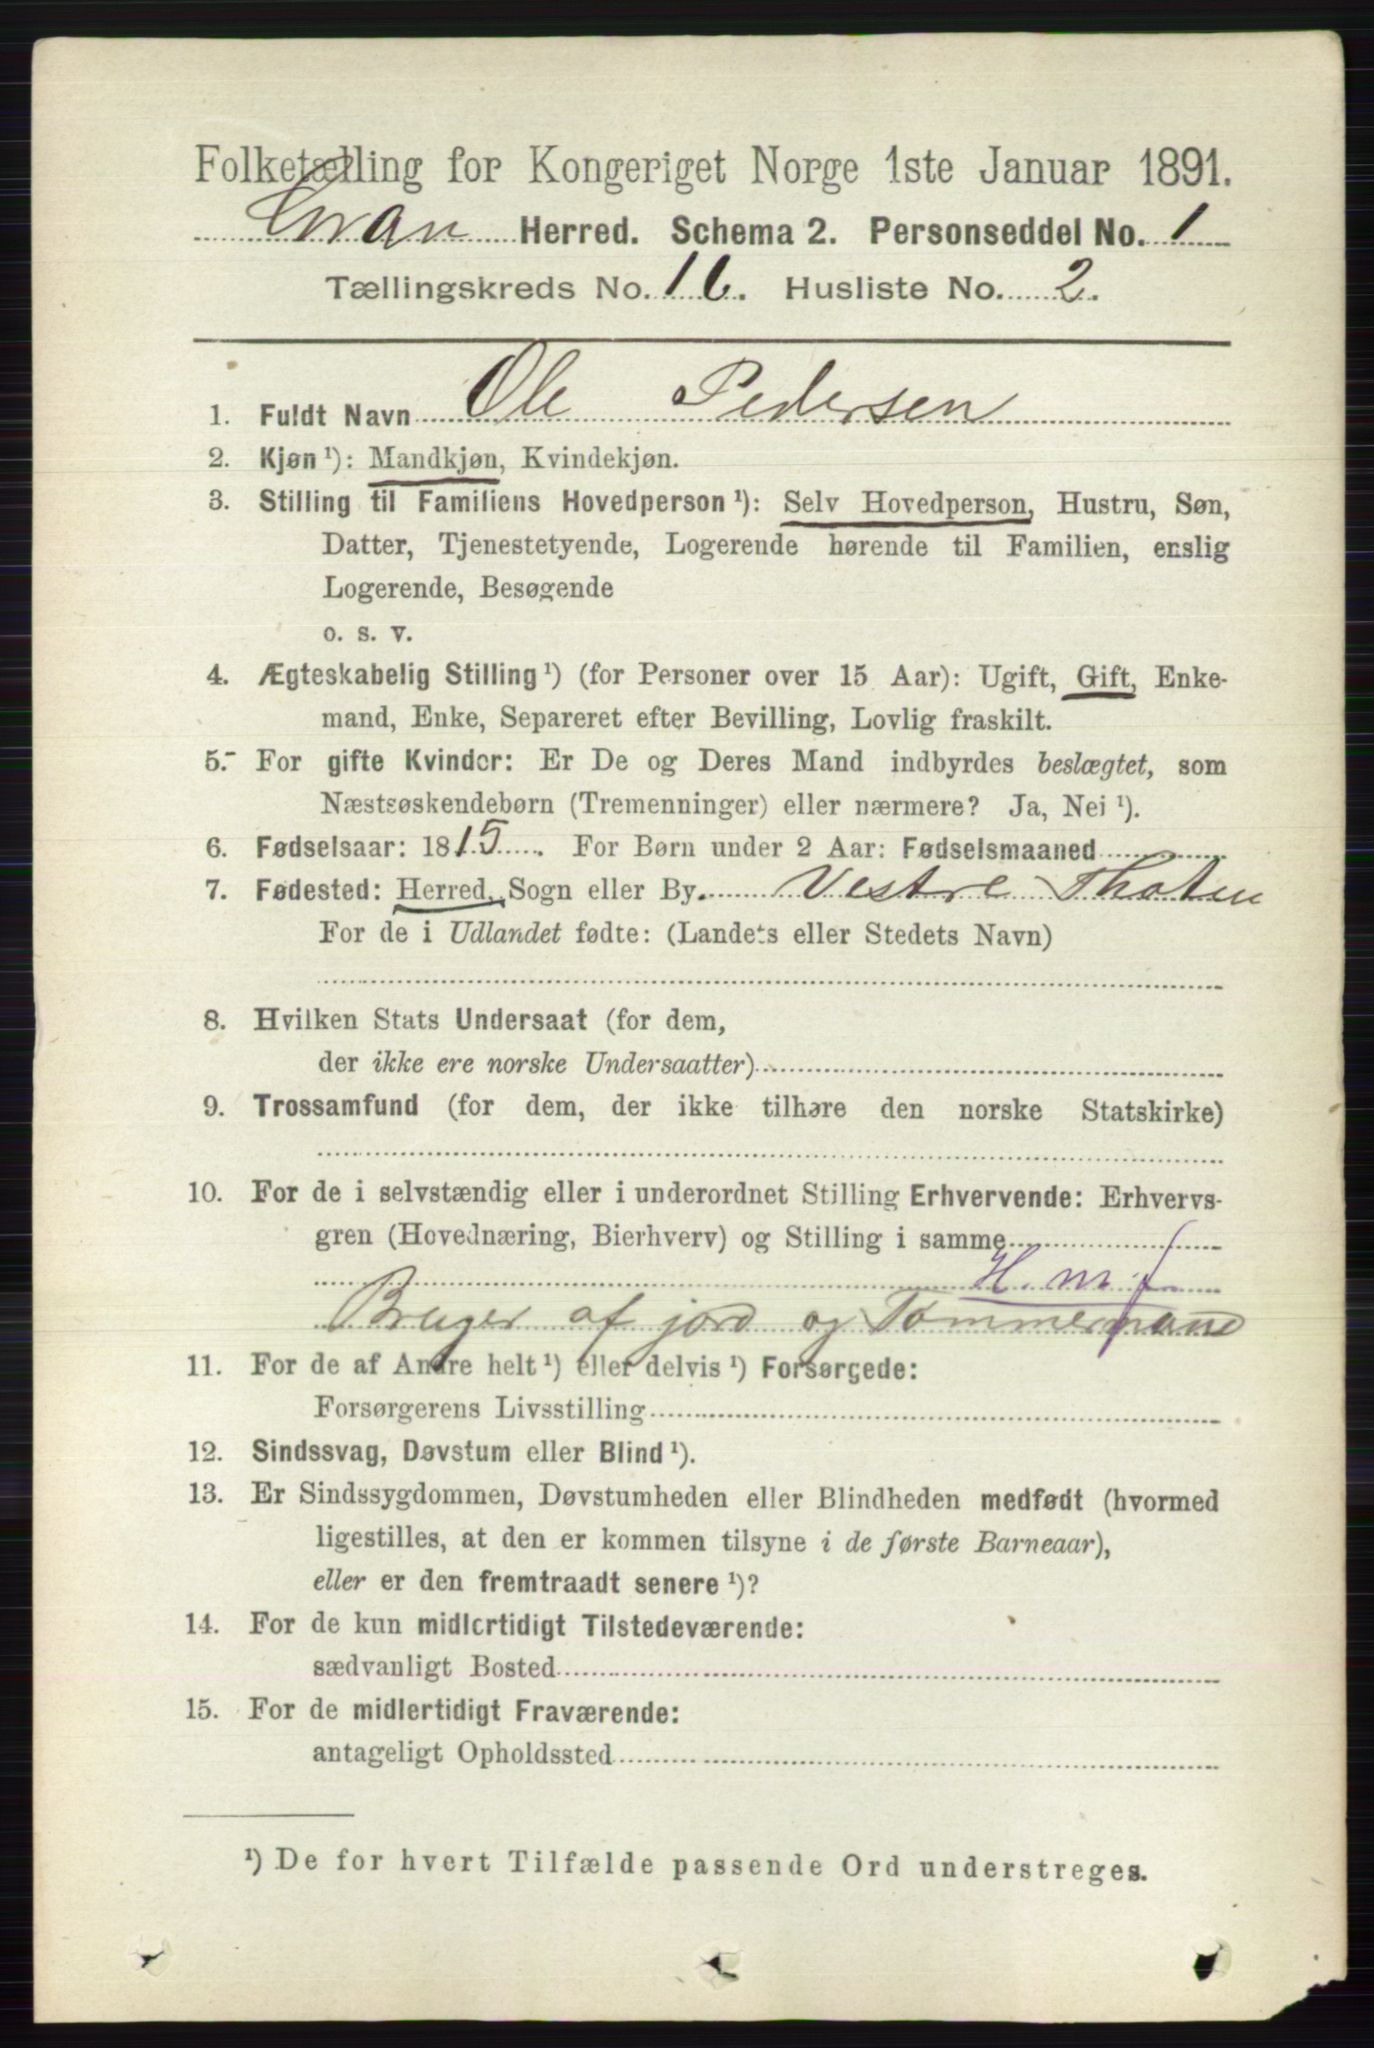 Folketælling for Kongeriget Norge 1ste Januar 1891.
Gran Herred. Schema 2. Personseddel No. 1
Tællingskreds No. 16. Husliste No. 2.
1. Fuldt Navn Ole Pedersen
2. Kjøn ¹): Mandkjøn, Kvindekjøn.
3. Stilling til Familiens Hovedperson ¹): Selv Hovedperson, Hustru, Søn,
Datter, Tjenestetyende, Logerende hørende til Familien, enslig
Logerende, Besøgende
o. s. v.
4. Ægteskabelig Stilling ¹) (for Personer over 15 Aar): Ugift, Gift, Enke-
mand, Enke, Separeret efter Bevilling, Lovlig fraskilt.
5. For gifte Kvinder: Er De og Deres Mand indbyrdes beslægtet, som
Næstsøskendebørn (Tremenninger) eller nærmere? Ja, Nei ¹).
6. Fødselsaar: 1815. For Børn under 2 Aar: Fødselsmaaned
7. Fødested: Herred, Sogn eller By. Vestre Thoten
For de i Udlandet fødte: (Landets eller Stedets Navn)
8. Hvilken Stats Undersaat (for dem,
der ikke ere norske Undersaatter)
9. Trossamfund (for dem, der ikke tilhøre den norske Statskirke)
10. For de i selvstændig eller i underordnet Stilling Erhvervende: Erhvervs-
gren (Hovednæring, Bierhverv) og Stilling i samme
H. m. f
Bruger af jord og Tømmermand
11. For de af Andre helt ¹) eller delvis ¹) Forsørgede:
Forsørgerens Livsstilling
12. Sindssvag, Døvstum eller Blind ¹).
13. Er Sindssygdommen, Døvstumheden eller Blindheden medfødt (hvormed
ligestilles, at den er kommen tilsyne i de første Barneaar),
eller er den fremtraadt senere ¹)?
14. For de kun midlertidigt Tilstedeværende:
sædvanligt Bosted
15. For de midlertidigt Fraværende:
antageligt Opholdssted
¹) De for hvert Tilfælde passende Ord understreges.